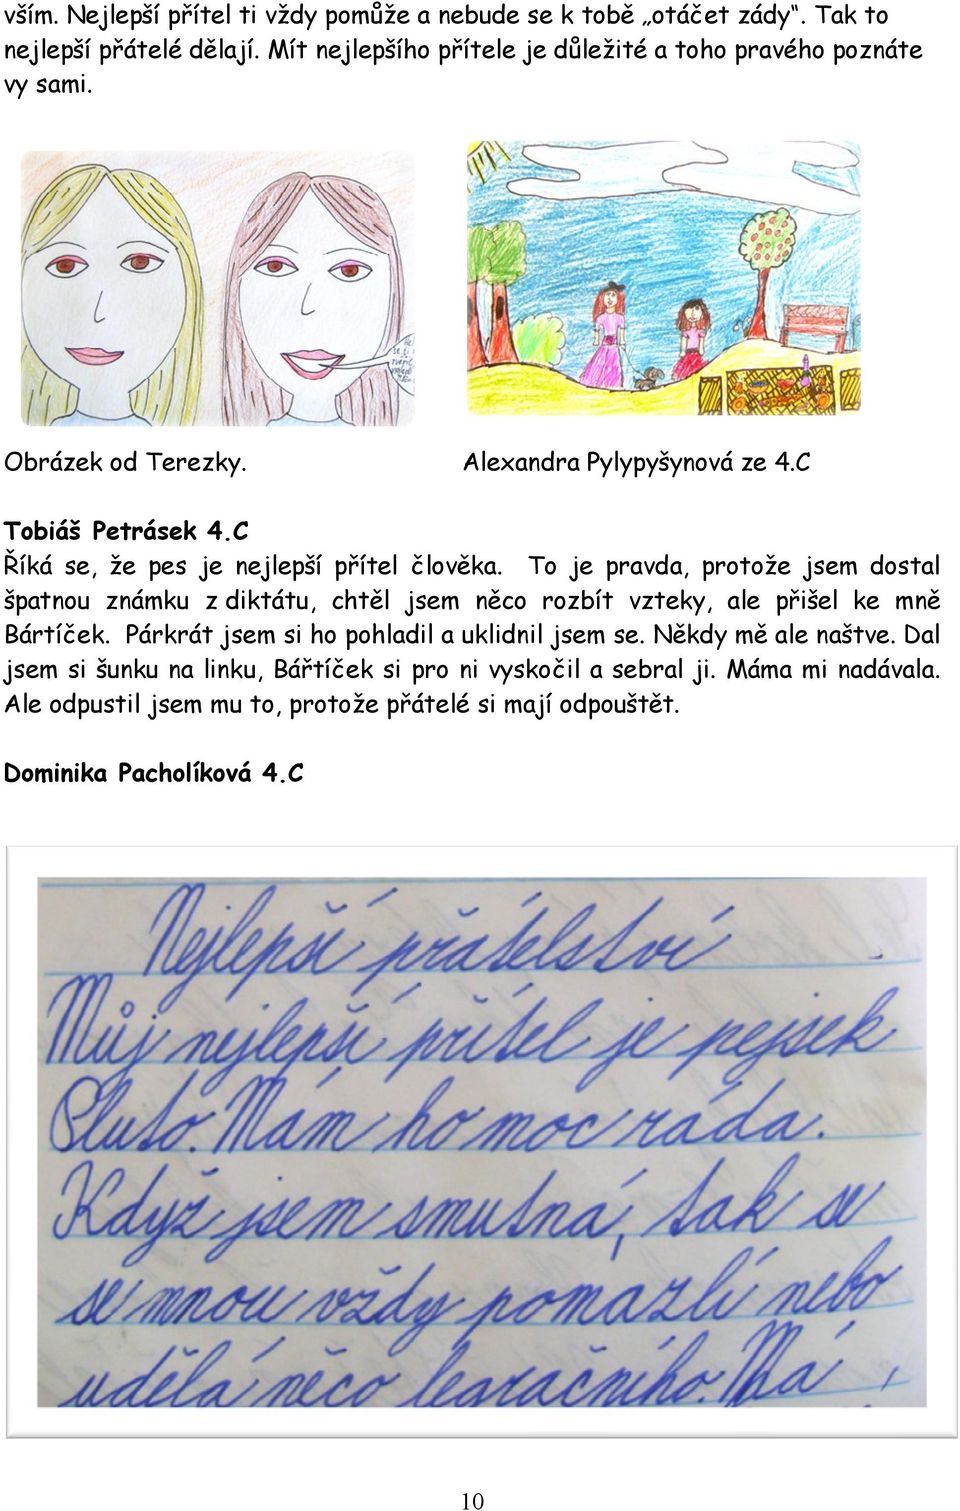 vším. Nejlepší přítel ti vždy pomůže a nebude se k tobě „otáčet zády“. Tak to
nejlepší přátelé dělají. Mít nejlepšího přítele je důležité a toho pravého poznáte
vy sami.
se ti
Obrázek od Terezky.
Alexandra Pylypyšynová ze 4.C
Tobiáš Petrásek 4.C
Říká se, že pes je nejlepší přítel člověka. To je pravda, protože jsem dostal
špatnou známku z diktátu, chtěl jsem něco rozbít vzteky, ale přišel ke mně
Bártíček. Párkrát jsem si ho pohladil a uklidnil jsem se. Někdy mě ale naštve. Dal
jsem si šunku na linku, Bářtíček si pro ni vyskočil a sebral ji. Máma mi nadávala.
Ale odpustil jsem mu to, protože přátelé si mají odpouštět.
Dominika Pacholíková 4.C
Nejlepší přátelství
Můj nejlepší přítel je pejsek
Pluto. Mám ho moc ráda.
Když jsem smutná, tak se
se mnou vždy pomazlí nebo
udělá něco legračního. Má
10